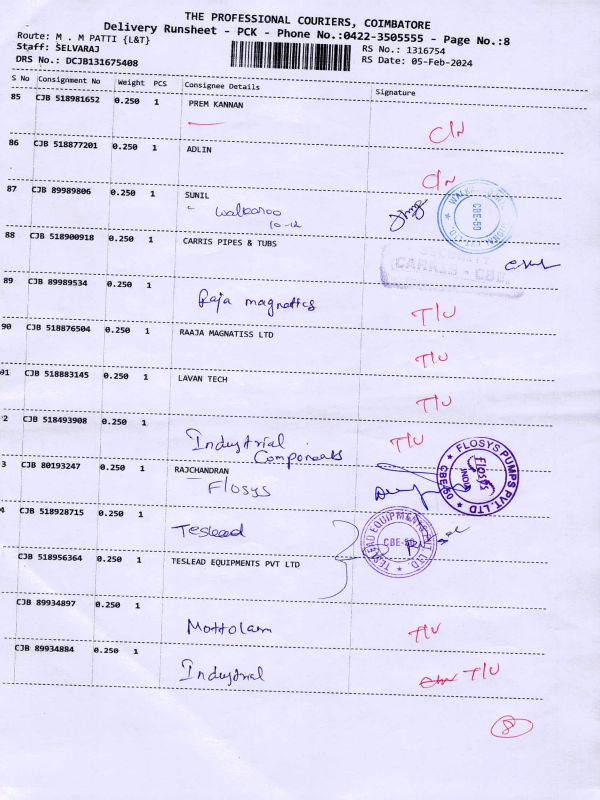 THE PROFESSIONAL COURIERS, COIMBATORE
Delivery Runsheet - PCK - Phone No.:0422-3505555 - Page No.:8
Route: M . M PATTI {L&T}
RS No.: 1316754
Staff: SELVARAJ
RS Date: 05-Feb-2024
DRS No.: DCJB131675408
S No Consignment No Weight PCS Consignee Details Signature
85 CJB 518981652 0.250 1 PREM KANNAN
C/N
86 CJB 518877201 0.250 1 ADLIN
C/N
87 CJB 89989806 0.250 1 SUNIL
Walkaroo
10-12
CBE-50
88 CJB 518900918 0.250 1 CARRIS PIPES & TUBS
89 CJB 89989534 0.250 1
Raja magnatics
T/U
90 CJB 518876504 0.250 1 RAAJA MAGNATISS LTD
T/U
91 CJB 518883145 0.250 1 LAVAN TECH
T/U
2 CJB 518493908 0.250 1
Industrial
Components
T/U
3 CJB 80193247 0.250 1 RAJCHANDRAN
Flosys
FLOSYS PUMPS PVT. LTD
CBE-50
Flosys
INDIA
4 CJB 518928715 0.250 1
Teslead
TESLEAD EQUIPMENTS PVT LTD.
CBE-50
CJB 518956364 0.250 1 TESLEAD EQUIPMENTS PVT LTD
CJB 89934897 0.250 1
T/U
CJB 89934884 0.250 1
Industrial
T/U
8